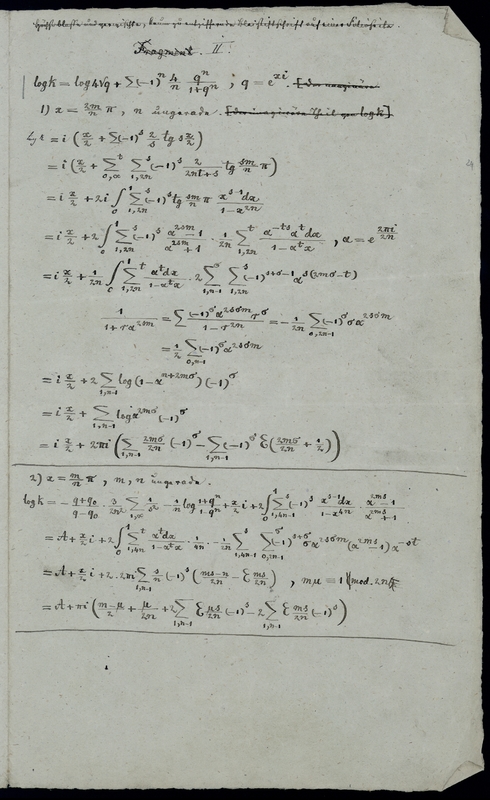 Fragment II.
log k = log 4√q + Σ(-1)^n 4/n q^n/(1+q^n) ; q = e^{xi}.
1) x = 2m/n π, n ungerade. [der imaginäre Theil von log k]
= i (x/2 + Σ(-1)^s 2/s tg s x/2)
= i (x/2 + Σ_{0,∞}^t Σ_{1,2n}^s (-1)^s 2/(2nt+s) tg sm/n π)
= i x/2 + 2i ∫_0^1 Σ_{1,2n}^s (-1)^s tg sm/n π x^{s-1}dx/(1-x^{2n})
= i x/2 + 2 ∫_0^1 Σ_{1,2n}^s (-1)^s (α^{2sm}-1)/(α^{2sm}+1) · 1/2n Σ_{1,2n}^t α^{-ts}α^t dx/(1-α^t x) , α = e^{2πi/2n}
= i x/2 + 1/2n ∫_0^1 Σ_{1,2n}^t α^t dx/(1-α^t x) · 2 Σ_{1,n-1}^σ Σ_{1,2n}^s (-1)^{s+σ-1} α^{s(2mσ-t)}
1/(1+rα^{2sm}) = Σ (-1)^σ α^{2sσm} r^σ/(1-r^{2n}) = -1/2n Σ_{0,2n-1} (-1)^σ σ α^{2sσm}
= 1/2 Σ_{0,n-1} (-1)^σ α^{2sσm}
= i x/2 + 2 Σ_{1,n-1} log (1-α^{n+2mσ}) (-1)^σ
= i x/2 + Σ_{1,n-1} log α^{2mσ} (-1)^σ
= i x/2 + 2πi (Σ_{1,n-1} 2mσ/2n (-1)^σ - Σ_{1,n-1} (-1)^σ E(2mσ/2n + 1/2))
2) x = m/n π, m, n ungerade.
log k = - (q+q_0)/(q-q_0) · 3/2n² Σ_{1,∞} 1/s² - 1/n log (1+q^n)/(1-q^n) + x/2 i + 2 ∫_0^1 Σ_{1,4n-1}^s (-1)^s x^{s-1}dx/(1-x^{4n}) · (α^{ms}-1)/(α^{ms}+1)
= A + x/2 i + 2 ∫_0^1 Σ_{1,4n}^t α^t dx/(1-α^t x) · 1/4n · 1/2n Σ_{1,4n-1}^s Σ_{0,2n-1}^σ (-1)^{s+σ} σ α^{2sσm} (α^{2ms}-1) α^{-st}
= A + x/2 i + 2·2πi Σ_{1,n-1} s/n (-1)^s (ms-n/2n - E ms/2n) , mμ ≡ 1 (mod. 2n)
= A + πi (m-μ/2 + μ/2n + 2 Σ_{1,n-1} E μs/2n (-1)^s - 2 Σ_{1,n-1} E ms/2n (-1)^s)